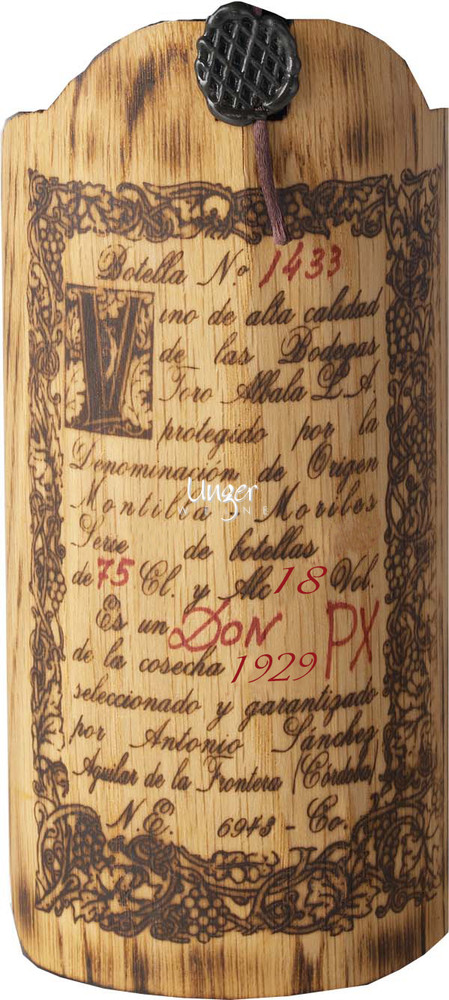 Botella Nº 1433
Vino de alta calidad
de las Bodegas
Toro Albala S.A.
protegido por la
Denominación de Origen
Montilla Moriles
Serie de botellas
de 75 Cl. y Alc 18 Vol.
Es un DON PX
de la cosecha 1929
seleccionado y garantizado
por Antonio Sánchez
Aguilar de la Frontera (Córdoba)
N.E. 6943 - Co.
Unger
WEINE